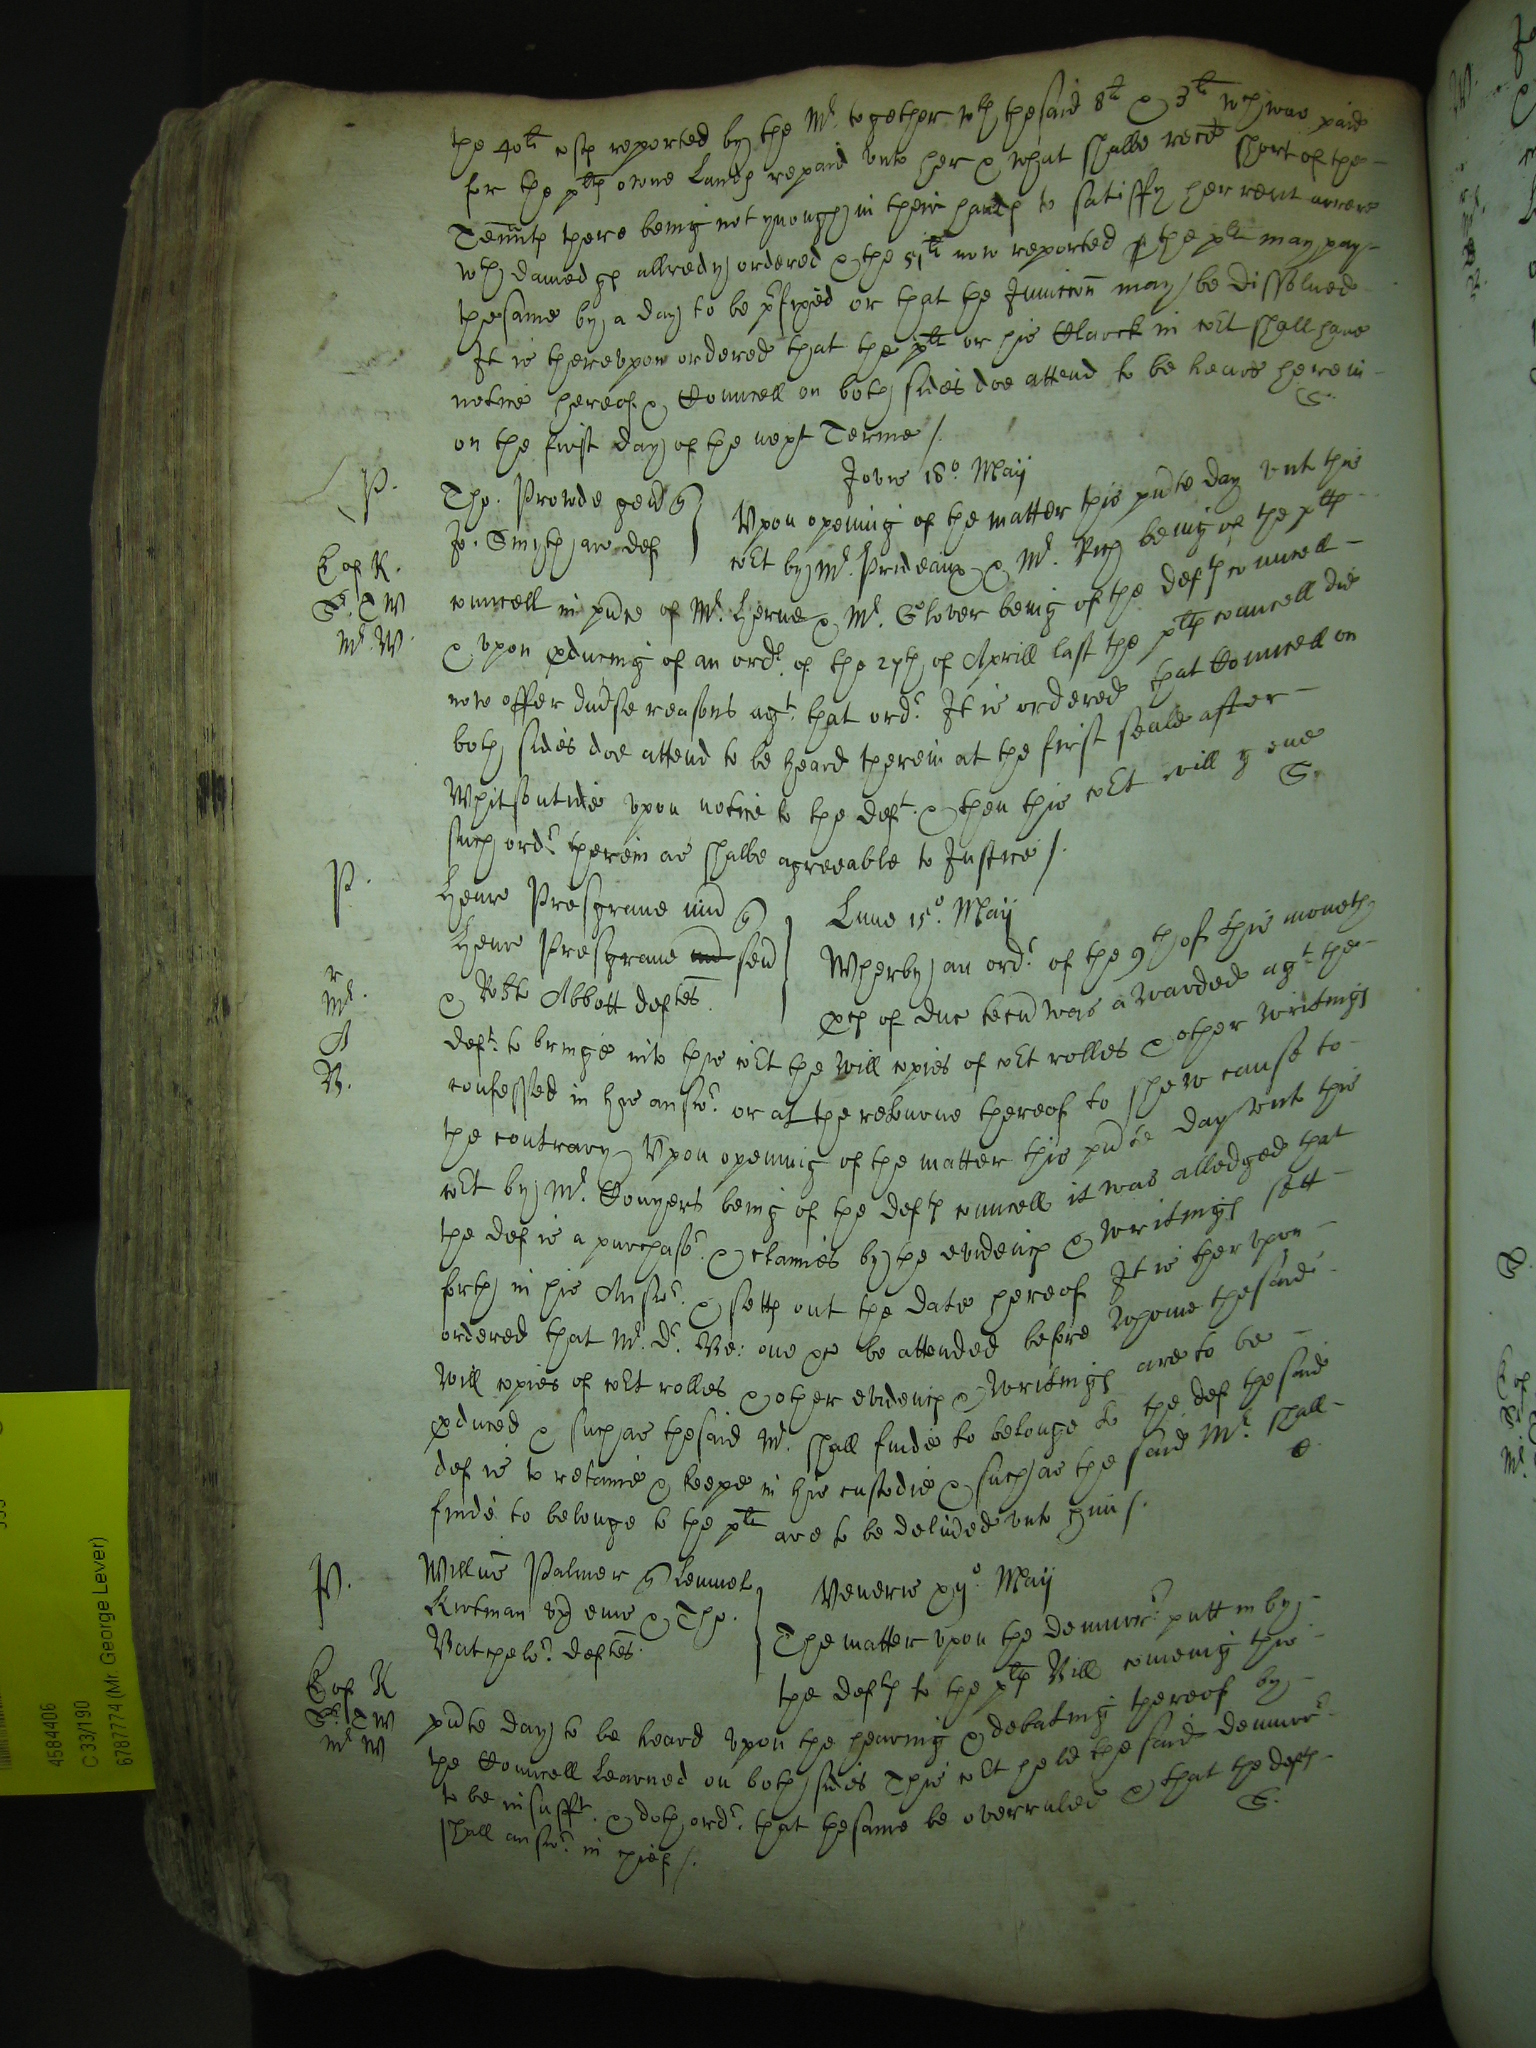 the 40li costs reported by the Mr. together wth the said 8li & 3li wch was paid
for the plts owne Lands repaid unto her & what shalbe recd short of the
Tennts there being not ynough in their hands to satisfy her rent arrere
wth damadgs allredy ordered & the 51li now reported the plt may pay
the same by a day to be prfixed or that the Iniuccon may be dissolued
It is thereupon ordered that the plt or his Clarck in cort shall have
notice hereof & Councell on both sides doe attend to be heard herein
on the first day of the next Terme /.
S.
P.
Jovis 18o. Maij
Tho. Prowde gen q
Jo. Smyth ar def
Vpon opening of the matter this pnte day vnt this
cort by Mr. Prideaux & Mr. Rich being of the plts
councell in pnce of Mr. Herne & Mr. Glover being of the defts councell
& vpon pducing of an ordr. of the 27th of Aprill last the plts councell did
now offer diuse reasons agt. that ordr. It is ordered that Councell on
both sides doe attend to be heard therein at the first seale after
Whitsontide vpon notice to the deft. & then this cort will gève
such ordr. therein as shalbe agreeable to Justice /.
S.
Cop K.
Sr. T W
Mr. W.
P.
Henr Presgraue iun q
Henr Presgraue sen
& Robt Abbott deftes.
Lune 15o. Maij
Wherby an ordr. of the 9th of this moneth
pcs of duc tecu was awarded agt. the
deft. to bringe into this cort the will copies of cort rolles & other writings
confessed in his answr. or at the retourne thereof to shew cause to
the contrary Vpon opening of the matter this pnte day vnto this
cort by Mr. Conyers being of the defts councell it was alledged that
the def is a purchasr. & claimes by the evidencs & writings sett
forth in his Answr. & setts out the date hereof It is therupon
ordered that Mr. Dr. Be: one &c be attended before whome the said
will copies of cort rolles & other evidencs & writings are to be
pduced & such as the said Mr. shall finde to belonge to the def the said
def is to retaine & keepe in his custodie & such as the said Mr. shall
finde to belonge to the plt are to be deliued vnto him /.
r
Mr.
A
B.
P.
Willm Palmer q Lemuel
Kirtman vx eius & Tho.
Batchelor. deftes.
Veneris xijo. Maij
The matter vpon the demurr. putt in by
the defts to the plts Bill comeing this
pnte day to be heard vpon the hearing & debating thereof by
the Councell Learned on both sides This cort held the said demurr.
to be insufft. & doth ordr. that the same be overruled & that the defts
shall answr. in chief /.
S.
Cop K
Sr. T W
Mr W
4584406
C 33/190
6787774 (Mr. George Lever)